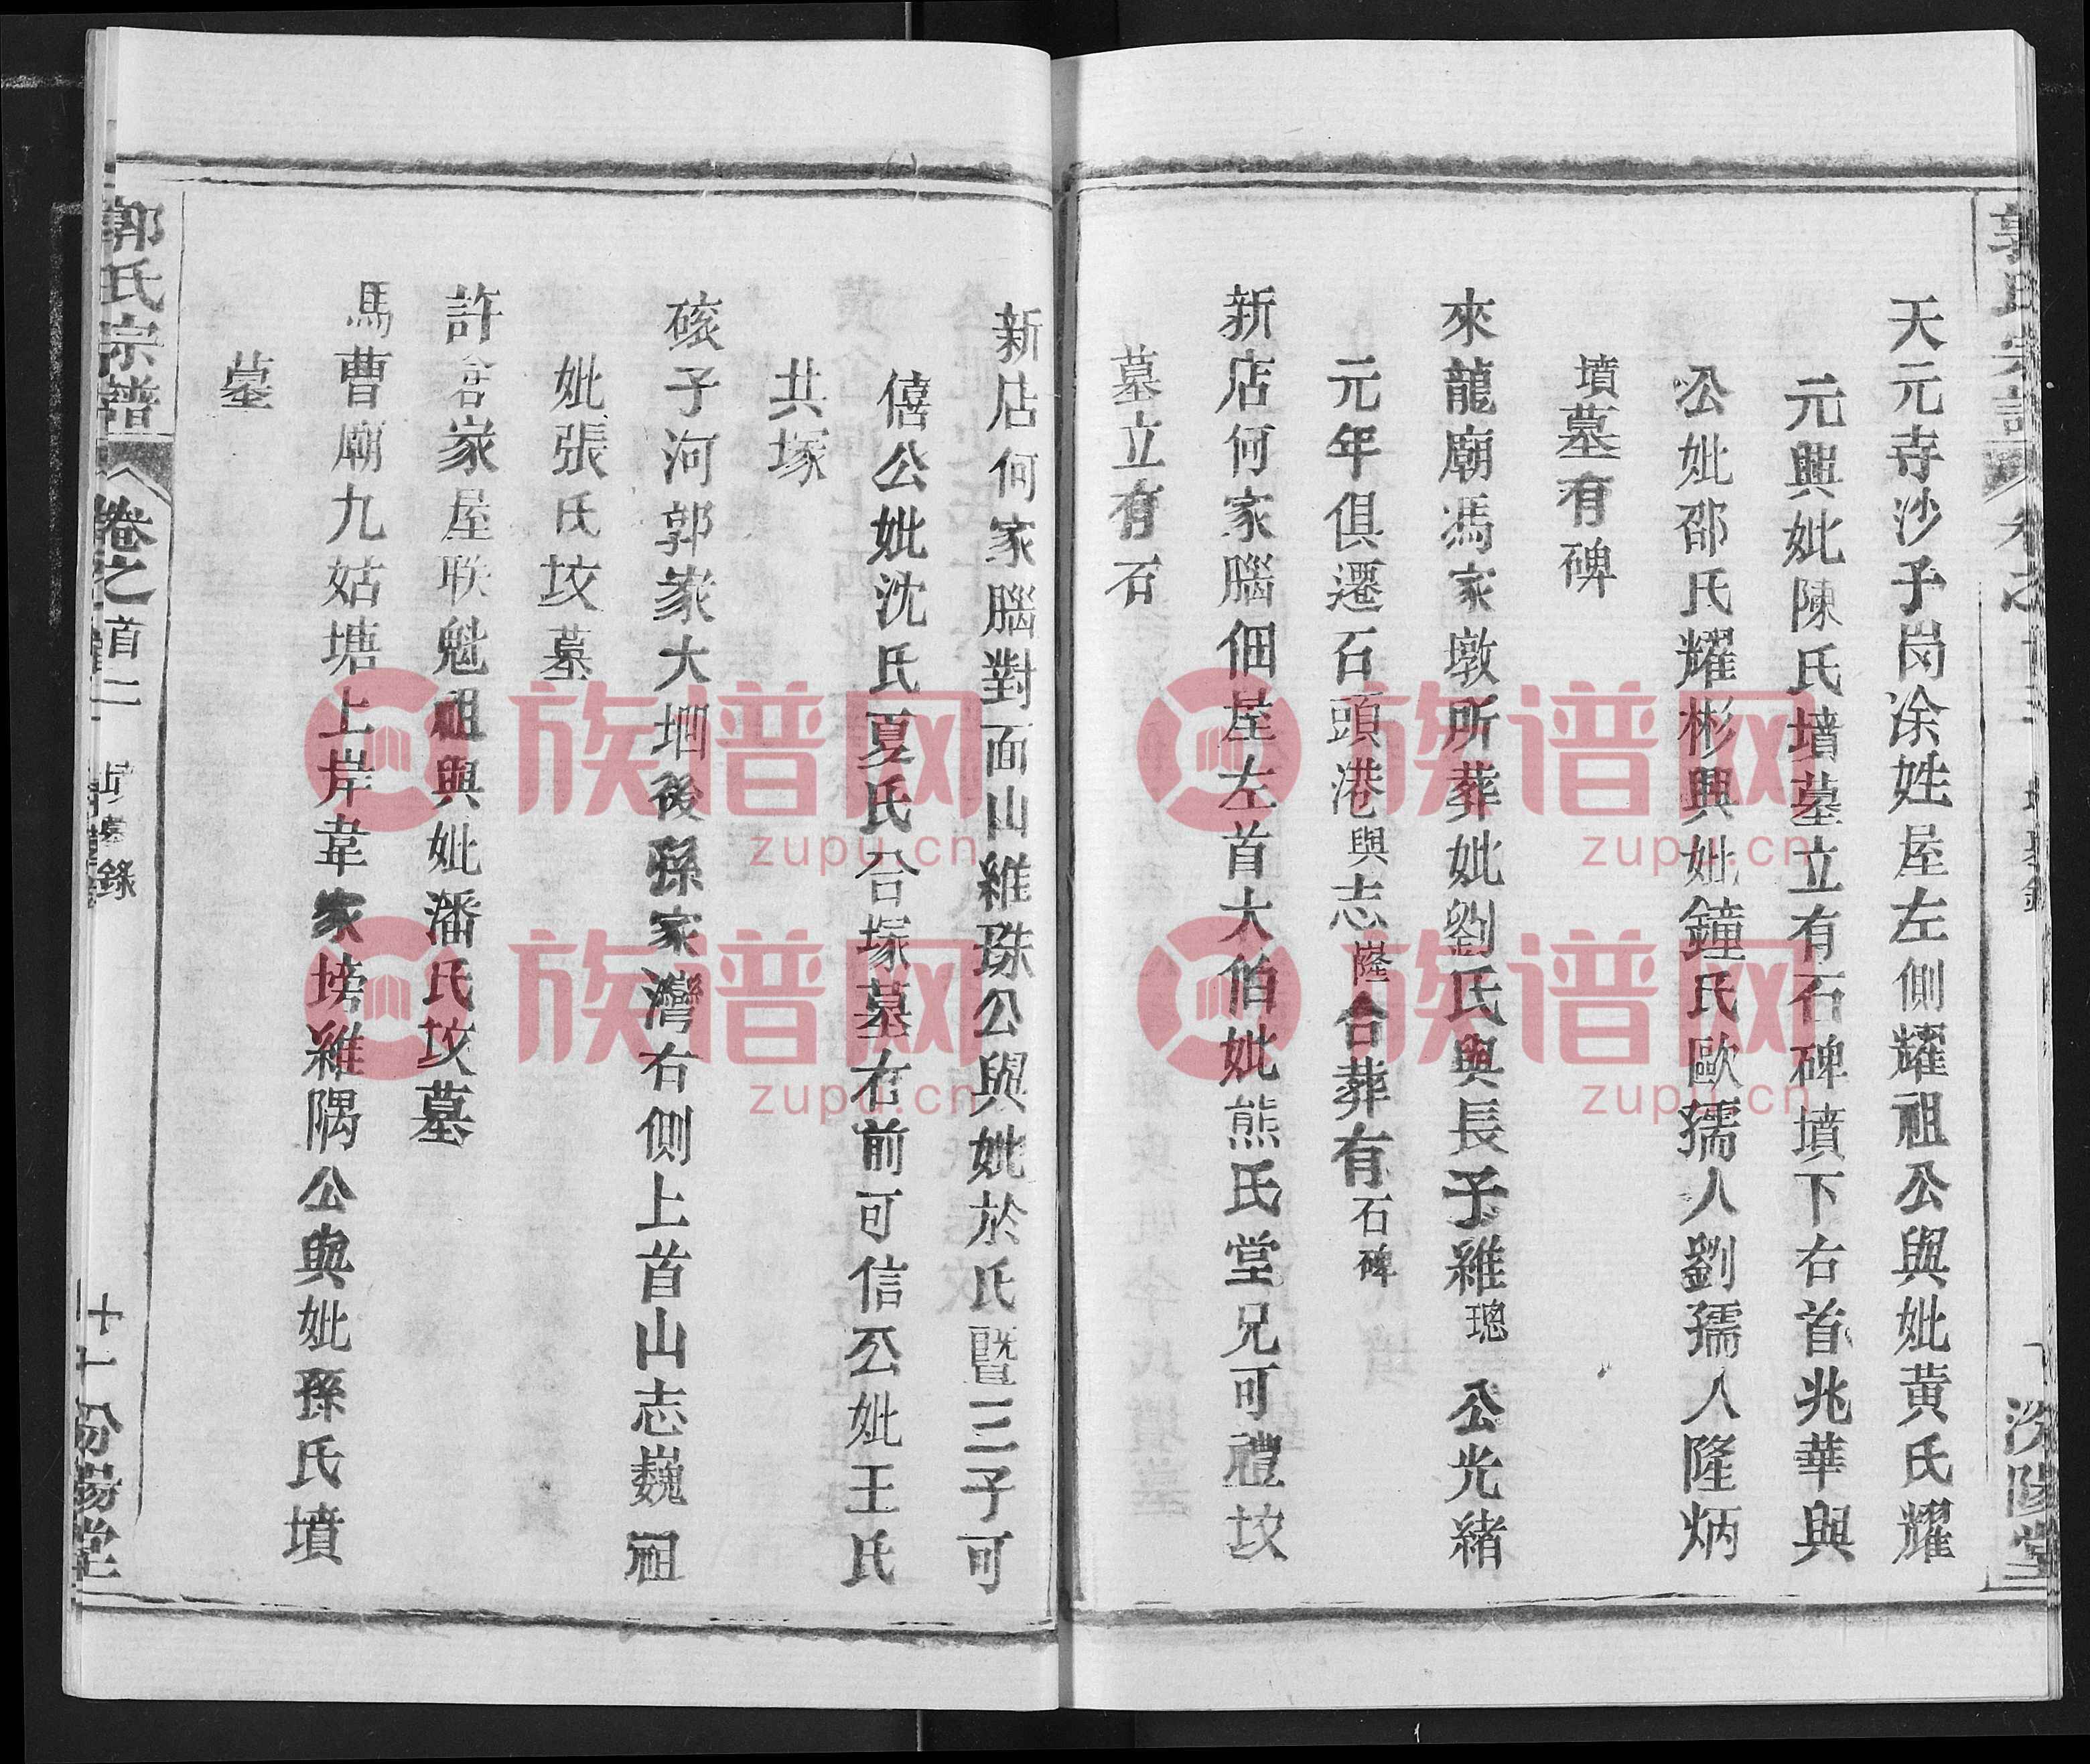 天元寺沙子崗涂姓屋左側耀祖公與妣黄氏耀
元興妣陳氏墳墓立有石碑墳下右首兆華與
公妣邵氏耀彬興妣鐘氏歐孺人劉孺人隆炳
墳墓有碑
來龍廟馮家墩所葬妣劉氏與長子維璁公光緒
元年俱遷石頭港與志隆合葬有石碑
新店何家腦佃屋左首大伯妣熊氏堂兄可禮坟
墓立有石
新店何家腦對面山維珠公與妣於氏暨三子可
僖公妣沈氏夏氏合塚墓右前可信公妣王氏
共塚
硋子河郭家大堌後孫家灣右側上首山志巍祖
妣張氏坟墓
許舍家屋联魁祖與妣潘氏坟墓
馬曹廟九姑塘上岸韋家塝維隅公與妣孫氏墳
墓
郭氏宗譜
卷之首二
墓錄
十一汾陽堂
族谱网
zupu.cn
族谱网
zupu.cn
族谱网
zupu.cn
族谱网
zupu.cn